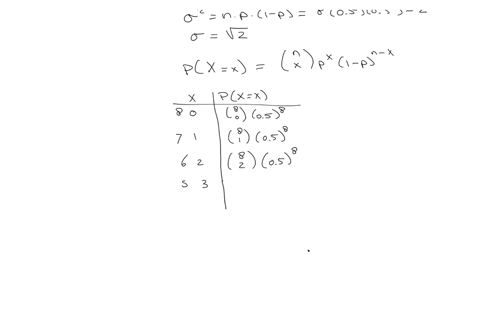 σ² = n.p.(1-p) = 8(0.5)(0.5) = 2
σ = √2
P(X=x) = (n x) p^x (1-p)^(n-x)
x P(X=x)
8 0 (8 0)(0.5)^8
7 1 (8 1)(0.5)^8
6 2 (8 2)(0.5)^8
5 3